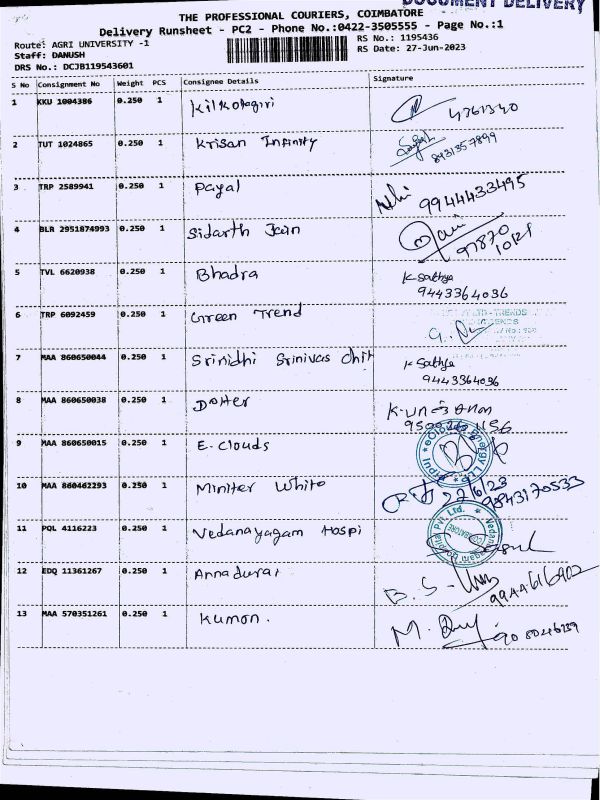 DOCUMENT DELIVERY
THE PROFESSIONAL COURIERS, COIMBATORE
Delivery Runsheet - PC2 - Phone No.:0422-3505555 - Page No.:1
Route: AGRI UNIVERSITY -1
RS No.: 1195436
Staff: DANUSH
RS Date: 27-Jun-2023
DRS No.: DCJB119543601
S No Consignment No Weight PCS Consignee Details Signature
1 KKU 1004386 0.250 1 Kilkotagiri 4761340
2 TUT 1024865 0.250 1 Krisan Infinity 8931357899
3 TRP 2589941 0.250 1 Payal 9944433495
4 BLR 2951874993 0.250 1 Sidarth Jain 97870
10121
5 TVL 6620938 0.250 1 Bhadra K Sathya
9443364036
6 TRP 6092459 0.250 1 Green Trend
7 MAA 860650044 0.250 1 Srinidhi Srinivas Chit K Sathya
9443364036
8 MAA 860650038 0.250 1
9 MAA 860650015 0.250 1 E-Clouds
10 MAA 860462293 0.250 1 Miniter White 27/6/23
9843170533
11 PQL 4116223 0.250 1 Vedanayagam Hospi
12 EDQ 11361267 0.250 1 Annadurai B.S
9944616902
13 MAA 570351261 0.250 1 Kumon. M.